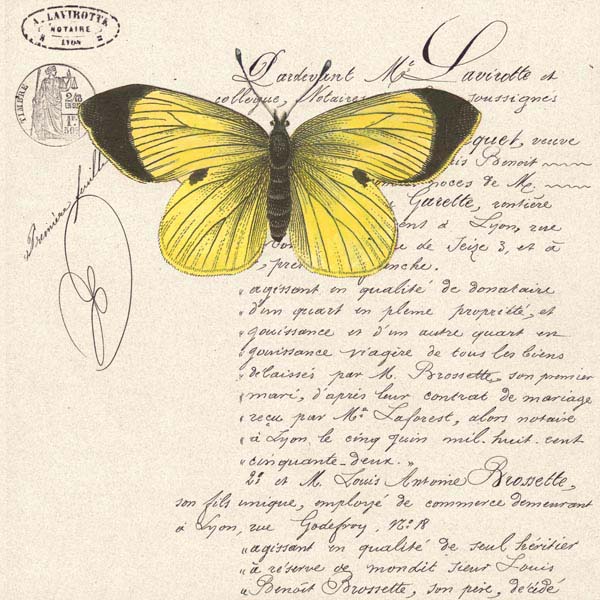 A. LAVIROTTE
NOTAIRE
LYON
TIMBRE
Première feuille
Pardevant Me Lavirotte et
collègue, Notaires soussignés
quet, veuve
Benoit
noces de M.
Garette, rentière
à Lyon, rue
de Seize 3, et à
"agissant en qualité de donataire
"d'un quart en pleine propriété, et
"jouissance et d'un autre quart en
"jouissance viagère de tous les biens
"délaissés par M. Brossette, son premier
"mari, d'après leur contrat de mariage
"reçu par Me Laforest, alors notaire
"à Lyon le cinq juin mil-huit-cent
"cinquante-deux."
2° et M. Louis Antoine Brossette,
son fils unique, employé de commerce demeurant
à Lyon, rue Godefroy, No 18
"agissant en qualité de seul héritier
"à réserve de mondit sieur Louis
"Benoît Brossette, son père, décédé